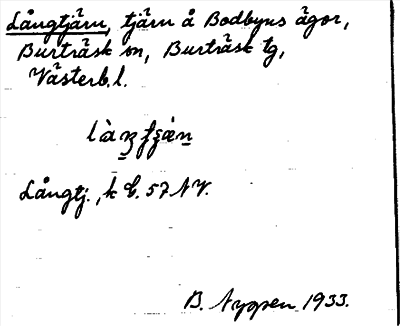 Långtjärn, tjärn å Bodbyns ägor,
Burträsk sn, Burträsk tg,
Västerb. l.
Långtj., k bl. 57 NV.
B. Nygren 1933.